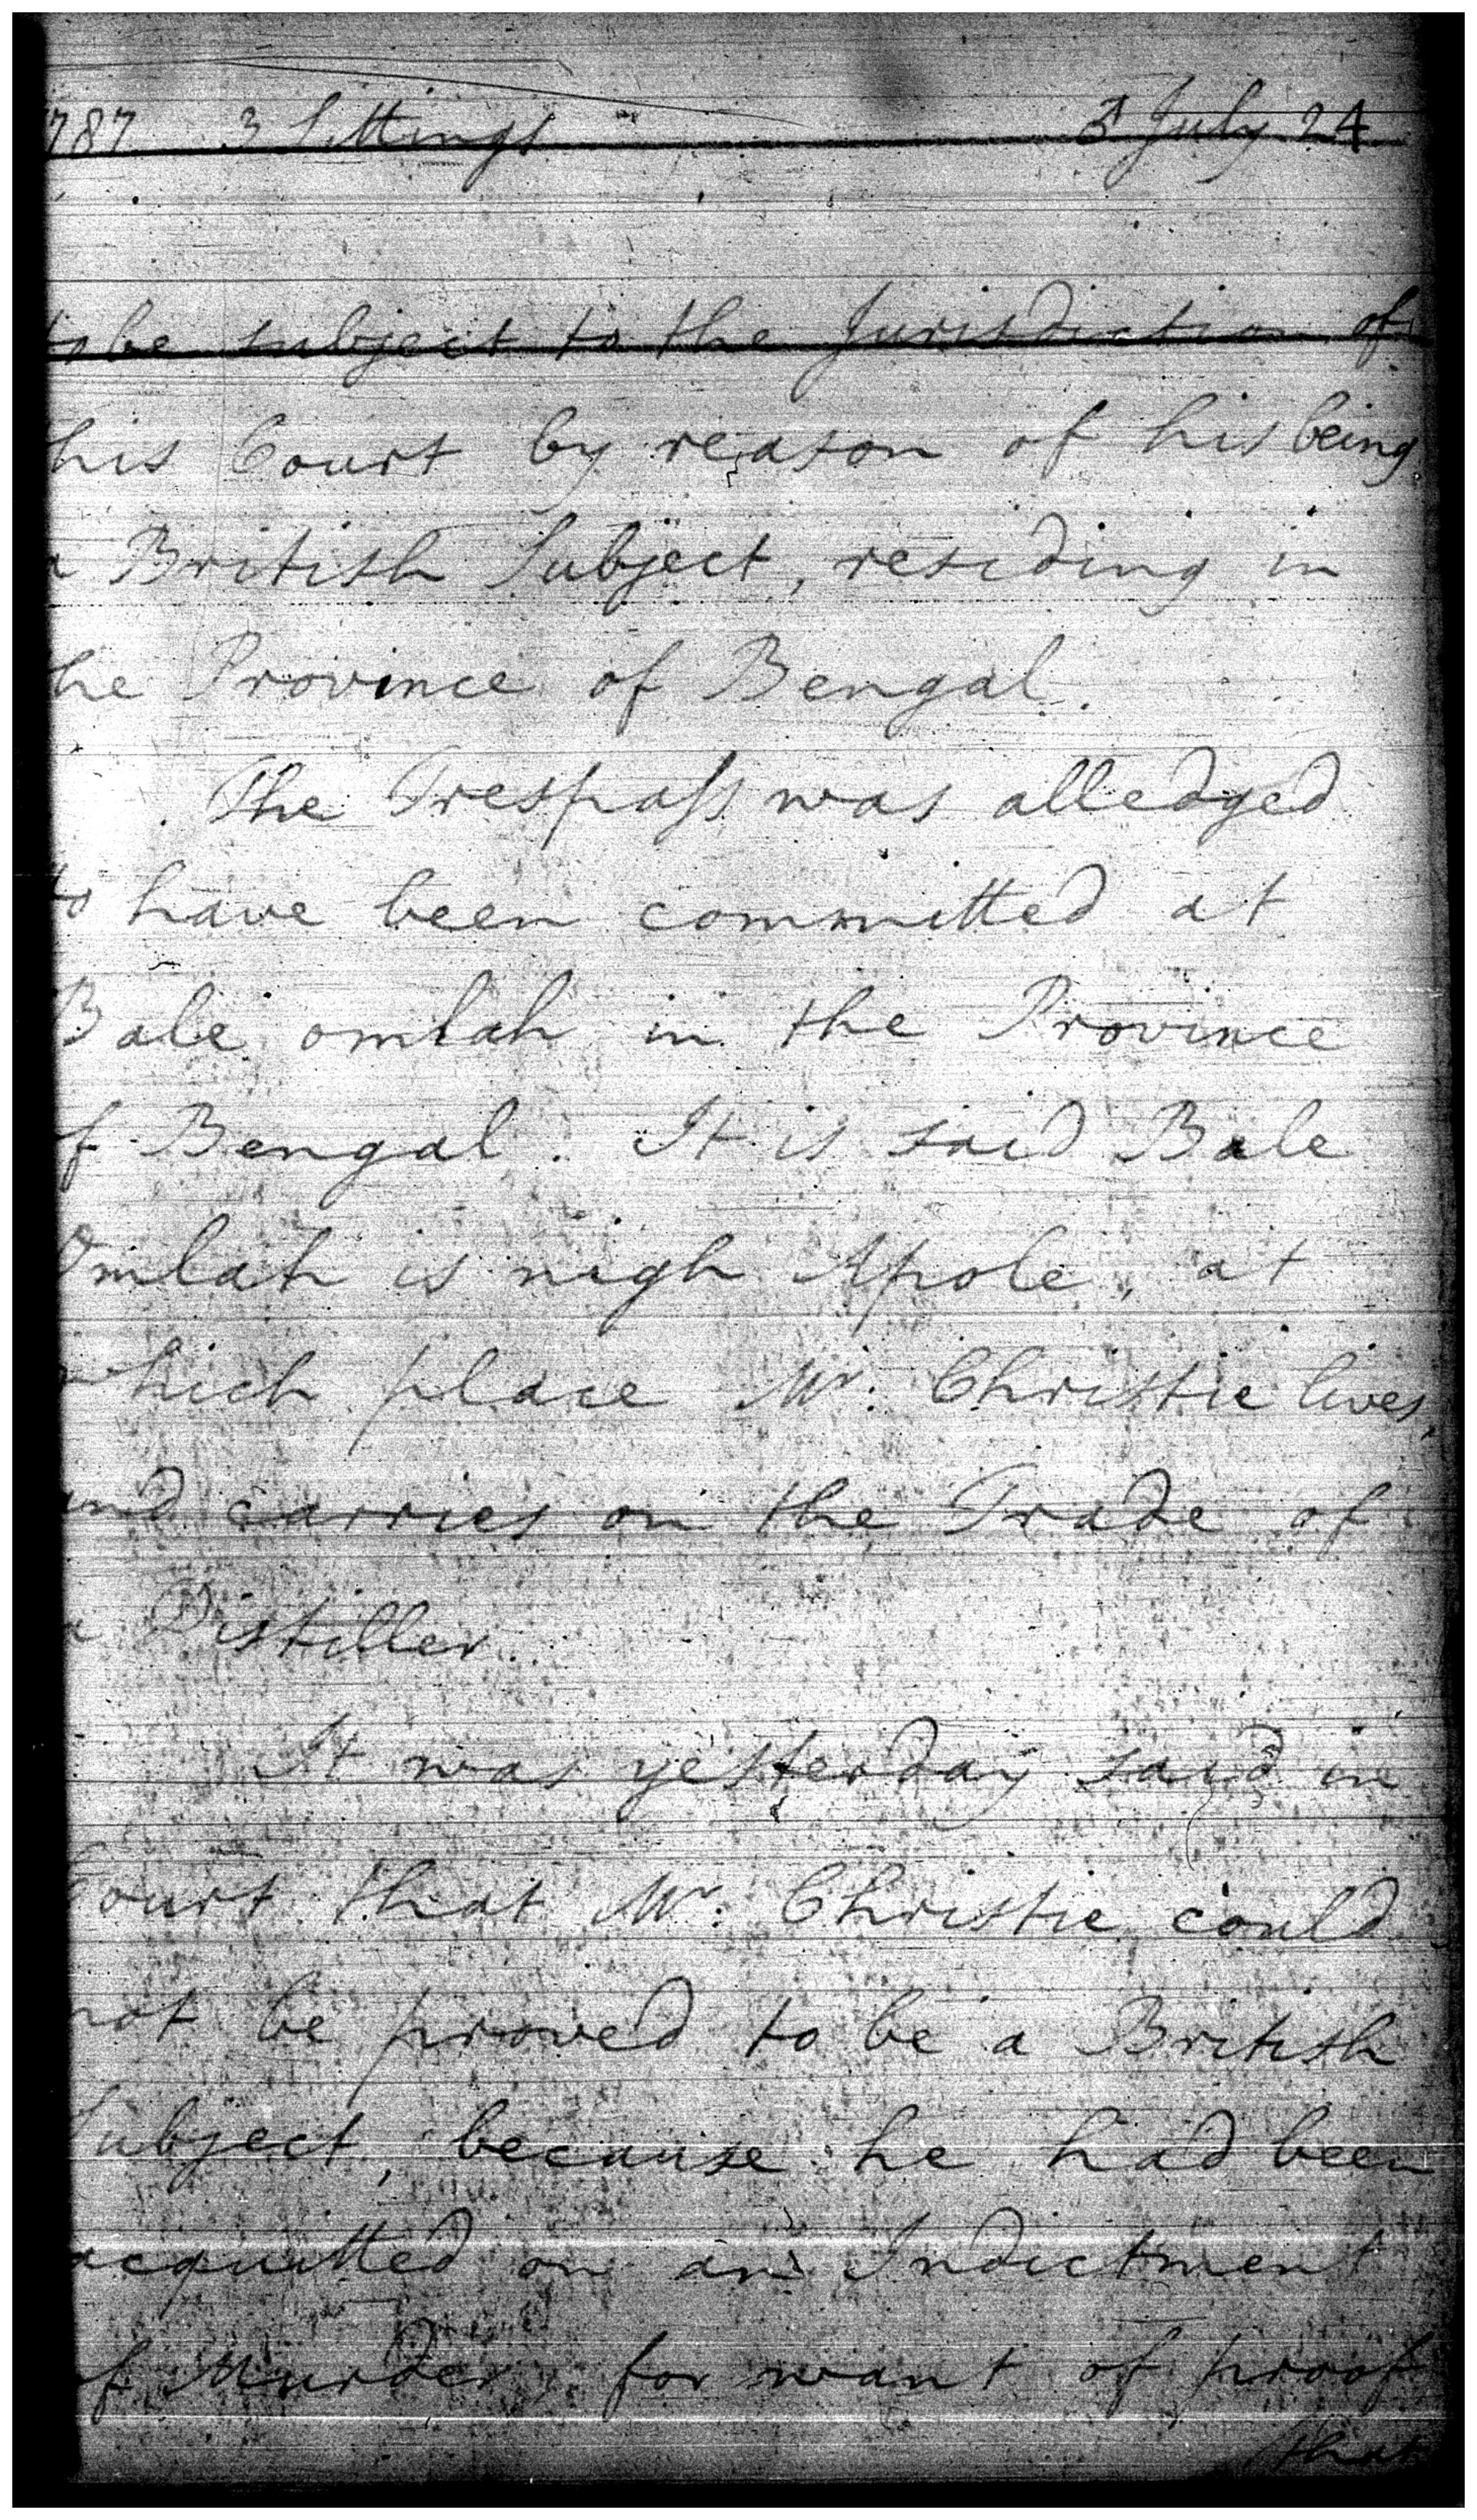 787 3 Sittings July 24
to be subject to the Jurisdiction of
his Court by reason of his being
a British Subject, residing in
he Province of Bengal.
The Trespass was alledged
to have been committed at
Bale omlah in the Province
f Bengal. It is said Bale
Omlah is nigh Apole, at
which place Mr. Christie lives,
and carries on the Trade of
a Distiller.
It was yesterday said in
Court that Mr. Christie could
not be proved to be a British
Subject, because he had been
acquitted on an Indictment
of Murder, for want of proof
that